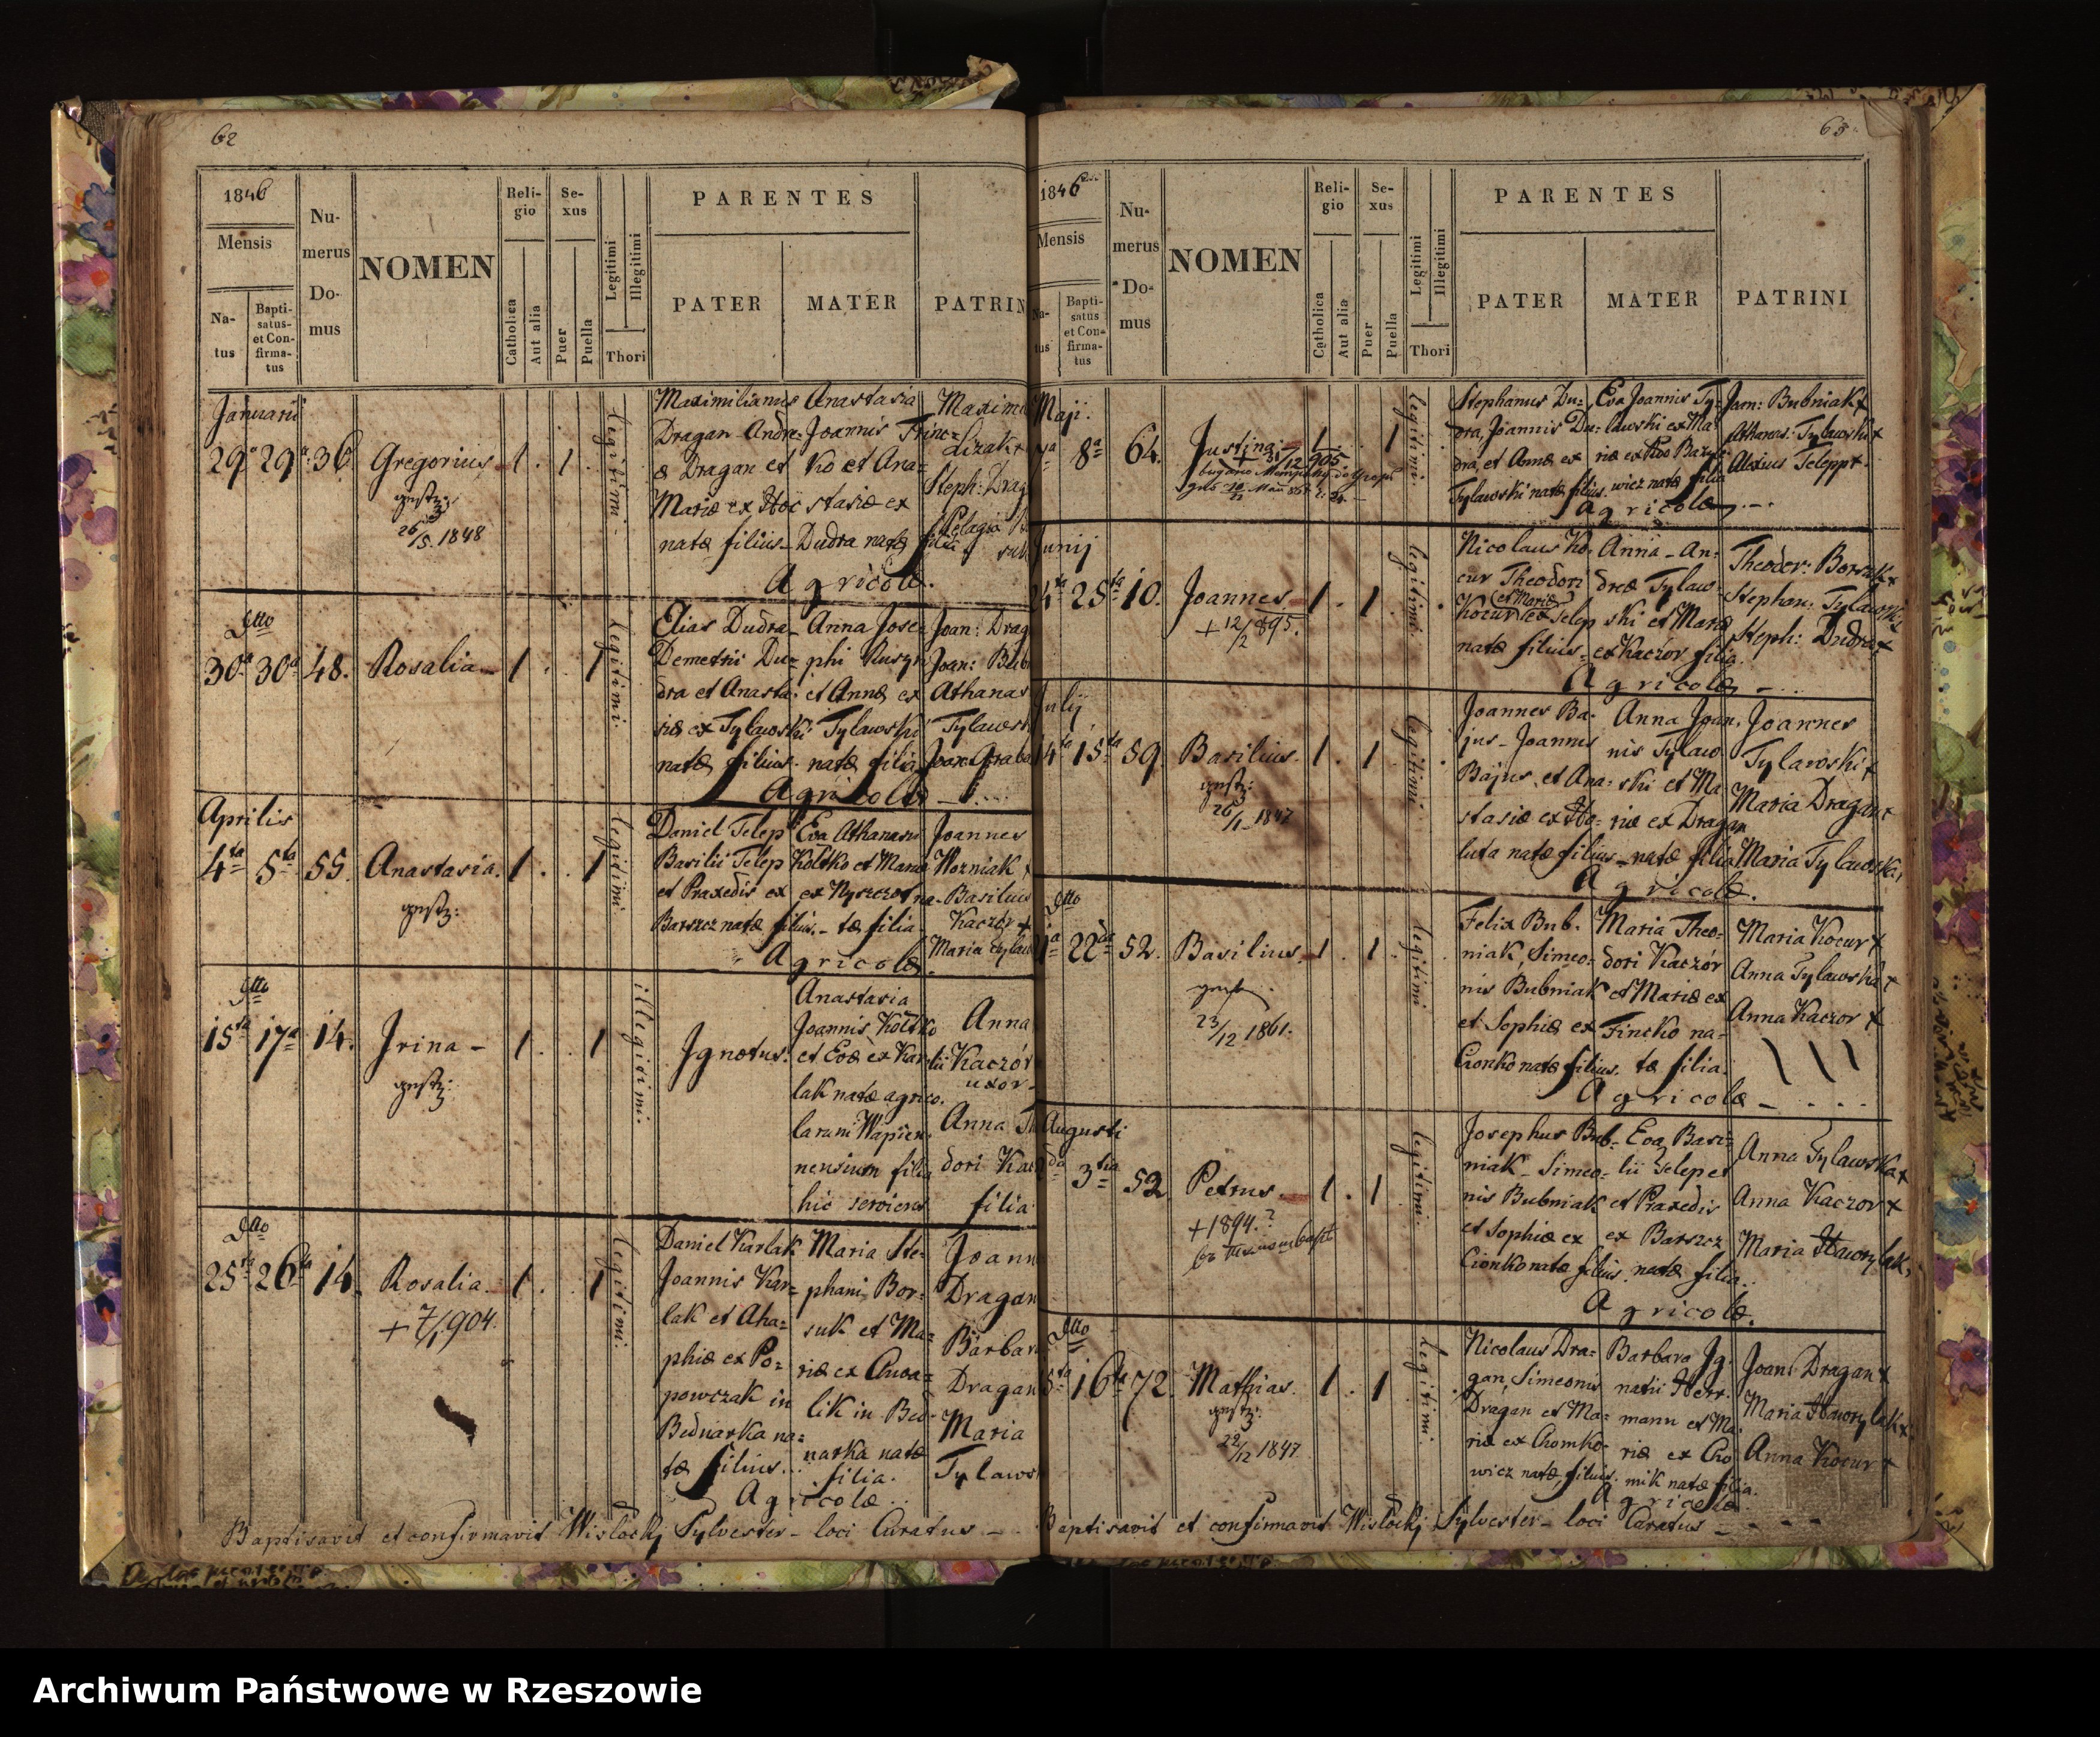 62
1846
Mensis
Na-
tus
Bapti-
satus-
et Con-
firma-
tus
Nu-
merus
Do-
mus
NOMEN
Reli-
gio
Catholica
Aut alia
Se-
xus
Puer
Puella
Legitimi
Illegitimi
Thori
PARENTES
PATER
MATER
PATRIN
Januarii
29a 29a 36.
Gregorius
26/5. 1848
1 . 1 .
legitimi.
Maximilianus
Dragan Andre-
æ Dragan et
Mariæ ex Hoc
natæ filius
Anastasia
Joannis Finc-
ko et Ana-
stasiæ ex
Dudra natæ filia
Maxim
Lizak +
Steph: Drag
Pelagia
Agricolæ.
Dtto
30a 30a 48.
Rosalia
1 . . 1
legitimi.
Elias Dudra
Demetrii Du-
dra et Anasta-
siæ ex Tylawski
natæ filius.
Anna Jose-
phi Ruszyn
et Annæ ex
Tylawski
natæ filia
Joan: Drag
Joan: Bub
Athanas
Tylawsk
Joan: Hrabo
Agricolæ
Aprilis
4ta 5ta 55.
Anastasia.
1 . . 1
legitimi.
Daniel Telep
Basilii Telep
et Praxedis ex
Barszcz natæ filius.
Eva Athanasii
Kostko et Mariæ
ex Nyszczot na-
tæ filia
Joannes
Wozniak +
Basilius
Kaczor +
Maria Tylaw
Agricolæ.
Dtto
15ta 17a 14.
Irina
1 . . 1
illegitimi.
Ignotus.
Anastasia
Joannis Kostko
et Evæ ex Kar-
lak natæ agrico-
larum Wapien-
nensium filia
hic serviens
Anna
lii Kaczór
uxor
Anna
dori Kac
filia
Dtto
25ta 26ta 14.
Rosalia.
+ 7/1 904.
1 . . 1
legitimi.
Daniel Karlak
Joannis Kar-
lak et Aha-
phiæ ex Po-
powczak in
Bednarka na-
tæ filius
Maria Ste-
phani Bor-
suk et Ma-
riæ ex Chwa-
lik in Bed-
narka natæ
filia.
Joann
Dragan
Barbar
Dragan
Maria
Tylaws
Agricolæ
Baptisavit et confirmavit Wisłockj Sylvester loci Curatus
63
1846
Mensis
Na-
tus
Bapti-
satus
et Con-
firma-
tus
Nu-
merus
Do-
mus
NOMEN
Reli-
gio
Catholica
Aut alia
Se-
xus
Puer
Puella
Legitimi
Illegitimi
Thori
PARENTES
PATER
MATER
PATRINI
Maji.
8a 64.
Justina
+ 31/12 905
1 . . 1
legitimi.
Stephanus Du-
dra, Joannis Du-
dra, et Annæ ex
Tylawski natæ filius.
Eva Joannis Ty-
lawski et Ma-
riæ ex Bazy-
wicz natæ filia
Joan: Bubniak +
Athanas: Tylawski +
Alexius Telepp +
Agricolæ
Junij
25ta 10.
Joannes
+ 12/2 895.
1 . 1 .
legitimi.
Nicolaus Ko-
cur Theodori
Kocur et Mariæ ex Telep
natæ filius
Anna An-
dreæ Tylaw-
ski et Mariæ
ex Kaczór filia.
Theodor: Borsuk +
Stephan: Tylawski +
Steph: Dudra +
Agricolæ
Julij
14ta 15ta 59.
Basilius.
26/1 1847
1 . 1 .
legitimi.
Joannes Ba-
jus Joannis
Bajus, et Ana-
stasiæ ex Ho-
luta natæ filius
Anna Joan-
nis Tylaw-
ski et Ma-
riæ ex Dragan
natæ filia
Joannes
Tylawski +
Maria Dragan +
Maria Tylawska
Agricolæ.
Dtto
22da 52.
Basilius.
23/12 1861.
1 . 1 .
legitimi
Felix Bub-
niak, Simeo-
nis Bubniak
et Sophiæ ex
Cionko natæ filius.
Maria Theo-
dori Kaczór
et Mariæ ex
Fincko na-
tæ filia.
Maria Kocur +
Anna Tylawska +
Anna Kaczor +
Agricolæ
Augusti
3tia 52
Petrus.
+ 1894.?
1 . 1
legitimi.
Josephus Bub-
niak Simeo-
nis Bubniak
et Sophiæ ex
Cionko natæ filius
Eva Basi-
lii Telep et
et Praxedis
ex Barszcz
natæ filia.
Anna Tylawska +
Anna Kaczor +
Maria Hawrylak
Agricolæ.
Dtto
16ta 72.
Mathias.
22/12 1847
1 . 1
legitimi.
Nicolaus Dra-
gan, Simeonis
Dragan et Ma-
riæ ex Chomko-
wicz natæ filius.
Barbara Ig-
natii Herr-
mann et Ma-
riæ ex Cho
mik natæ filia.
Joan: Dragan +
Maria Hawrylak +
Anna Kocur +
Agricolæ
Baptisavit et confirmavit Wisłockj Sylvester loci Curatus
Archiwum Państwowe w Rzeszowie